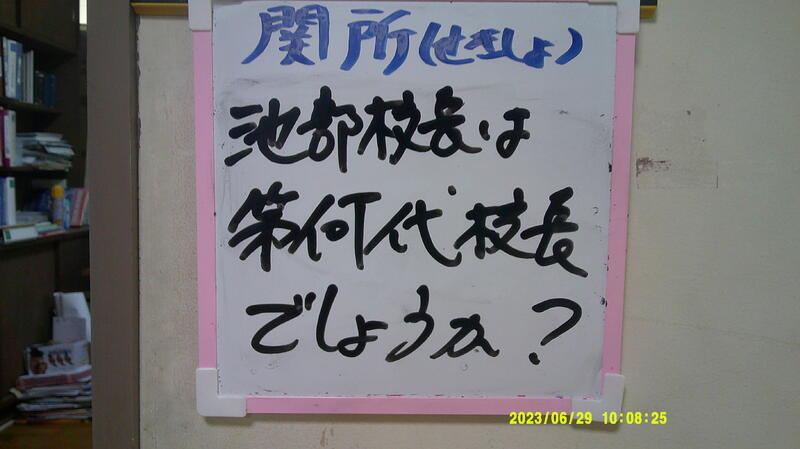 関所(せきしょ)
池部校長は
第何代校長
でしょうか?
2023/06/29 10:08:25